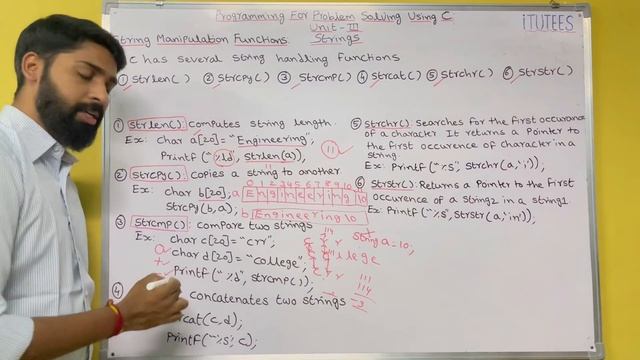 Programming For Problem Solving Using C
Unit - III
iTUTEES
String Manipulation Functions:
Strings
C has several string handling functions
① Strlen( ) ② Strcpy( ) ③ Strcmp( ) ④ Strcat( ) ⑤ Strchr( ) ⑥ Strstr( )
① Strlen(): Computes string length.
Ex: char a[20]="Engineering";
Printf("%d", strlen(a)); 11
② Strcpy(): Copies a string to another
0 1 2 3 4 5 6 7 8 9 10 11
Ex: char b[20], a Engineering \0
Strcpy(b, a); b Engineering \0
③ Strcmp(): compare two strings
Ex: char c[20]="crr";
char d[20]="college";
Printf("%d", strcmp());
④ concatenates two strings
cat(c,d);
Printf("%s", c);
⑤ Strchr(): Searches for the first occurance
of a character. It returns a Pointer to
the first occurence of character in a
string.
Ex: Printf("%s", strchr(a,'i'));
⑥ Strstr(): Returns a Pointer to the First
occurence of a String2 in a string1.
Ex: Printf("%s", strstr(a,'in'));
String a=10;
114
111
114
-3